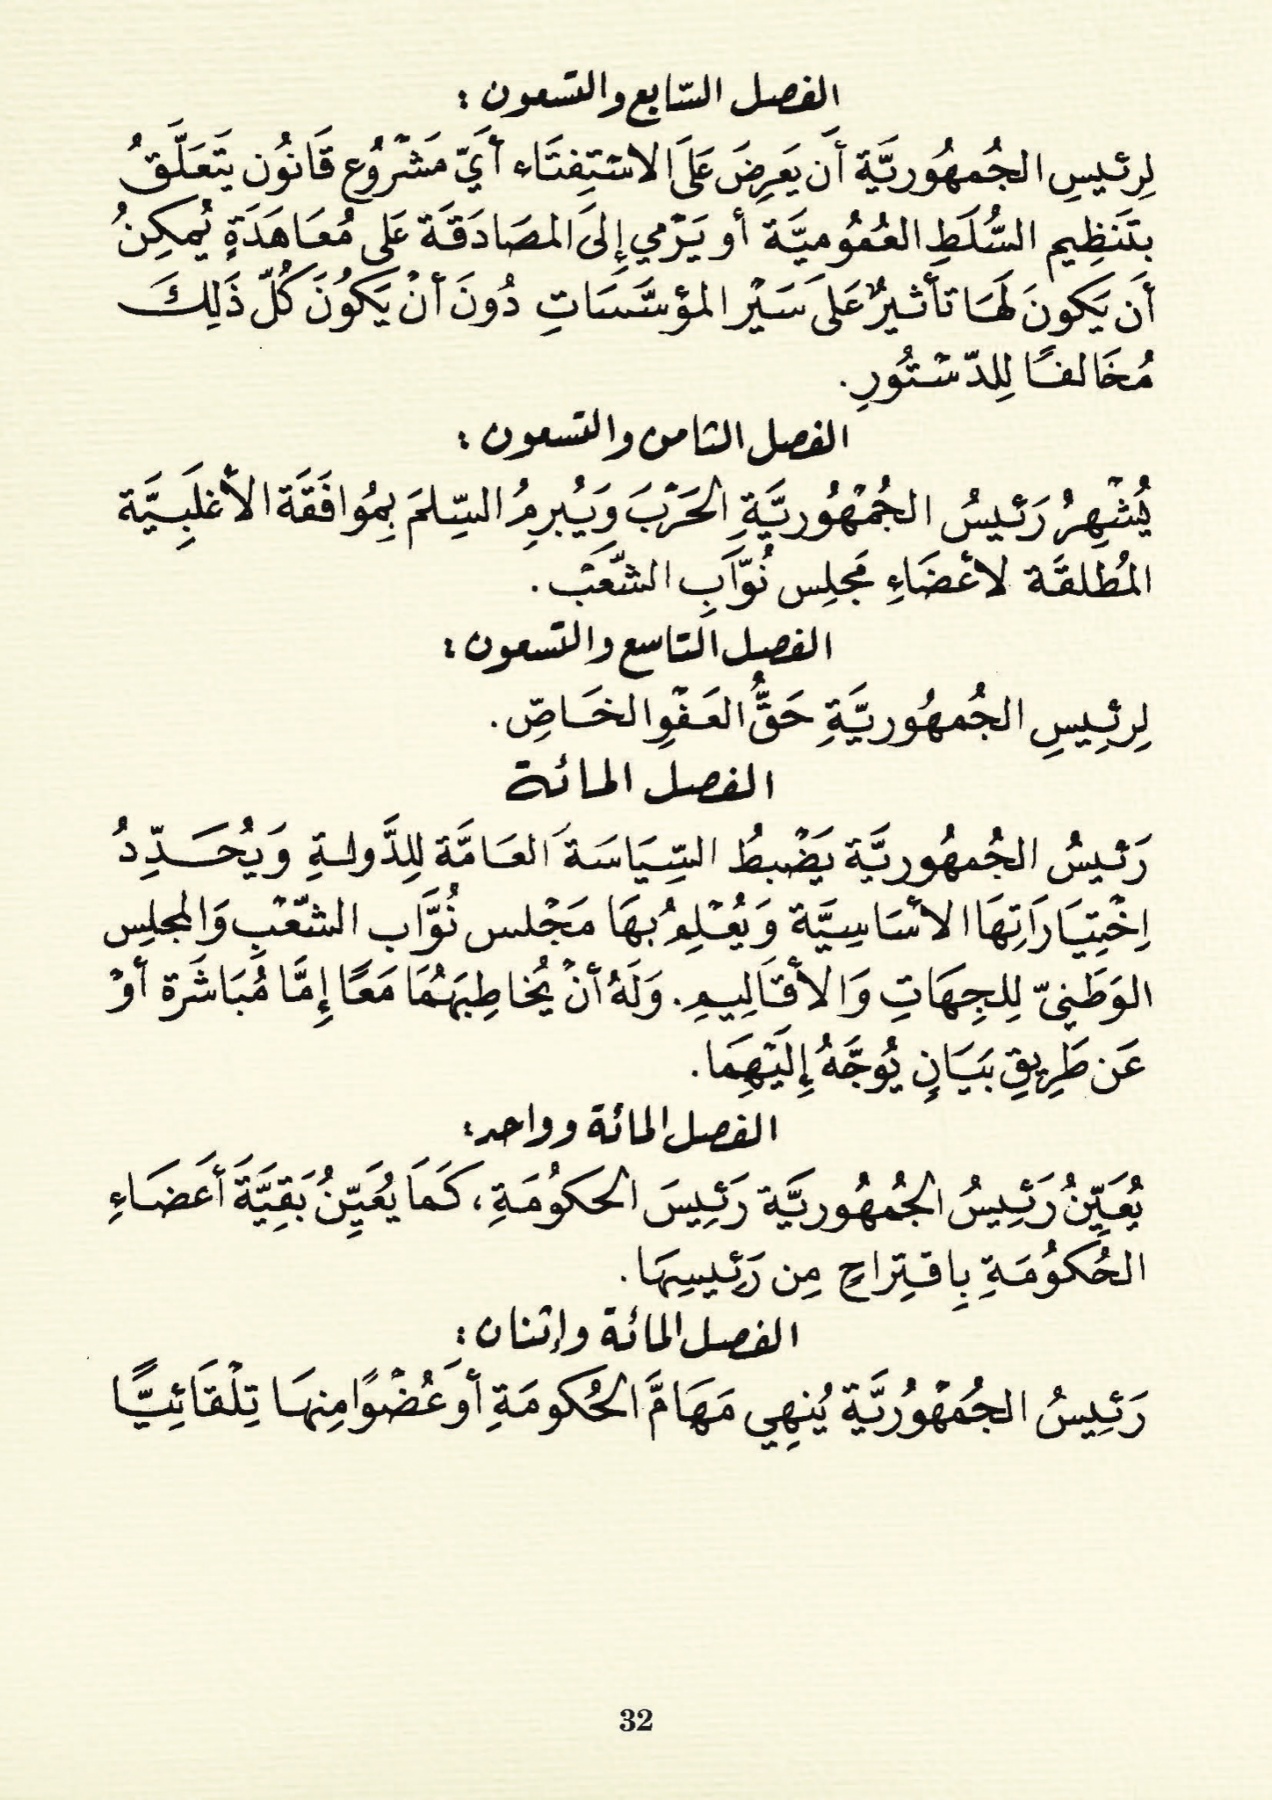 الفصل السّابع والتسعون :
لِرئيسِ الجُمهُوريَّة أَن يَعرِضَ عَلَى الاسْتِفتَاء أيَّ مَشْرُوع قَانُون يتَعَلَّقُ
بتَنظِيم السُّلَطِ العُمُوميَّة أو يَرْمي إلَى المصَادَقَة عَلى مُعَاهَدَةٍ يُمكِنُ
أَن يَكونَ لَهَا تأثيرٌ عَلَى سَيْر المؤسَّسَاتِ دُونَ أنْ يَكوُنَ كُلّ ذَلِكَ
مُخَالفًا لِلدّسْتُورِ.
الفصل الثامن والتسعون :
يُشْهِرُ رَئيسُ الجُمْهُوريَّةِ الحَرْبَ وَيُبرِمُ السِّلمَ بِمُوافَقَة الأغلَبِيَّة
المُطلقَة لأعْضَاءِ مَجلِس نُوّاَبِ الشَّعَبْ.
الفصل التاسع والتسعون :
لِرئِيسِ الجُمهُوريَّةِ حَقُّ العَفْوِ الخَاصِّ.
الفصل المائة
رَئيسُ الجُمهُوريَّة يَضْبطُ السِّيَاسَةَ العَامَّة لِلدَّولةِ وَيُحَدِّدُ
اِخْتِيَارَاتِهَا الأسَاسِيَّة وَيُعْلِمُ بهَا مَجْلس نُوَّاب الشّعْبِ وَالمجلِس
الوَطَنيّ لِلجِهَاتِ وَالأقَالِيمِ. وَلَهُ أنْ يُخاطِبَهُمَا مَعًا إمَّا مُبَاشَرة أوْ
عَن طَرِيقِ بَيَانٍ يُوجَّهُ إلَيْهِمَا.
الفصل المائة وواحد:
يُعَيِّنُ رَئِيسُ الجُمهُوريَّة رَئِيسَ الحكوُمَةِ، كَمَا يُعَيِّنُ بَقِيَّةَ أعَضَاءِ
الحُكوُمَةِ بِاقتِراحٍ مِن رَئِيسِهَا.
الفصل المائة وإثنان:
رَئِيسُ الجُمْهُوريَّة يُنهِي مَهَامَّ الحُكومَةِ أوَ عُضْوًا مِنهَا تِلْقَائِيًّا
32